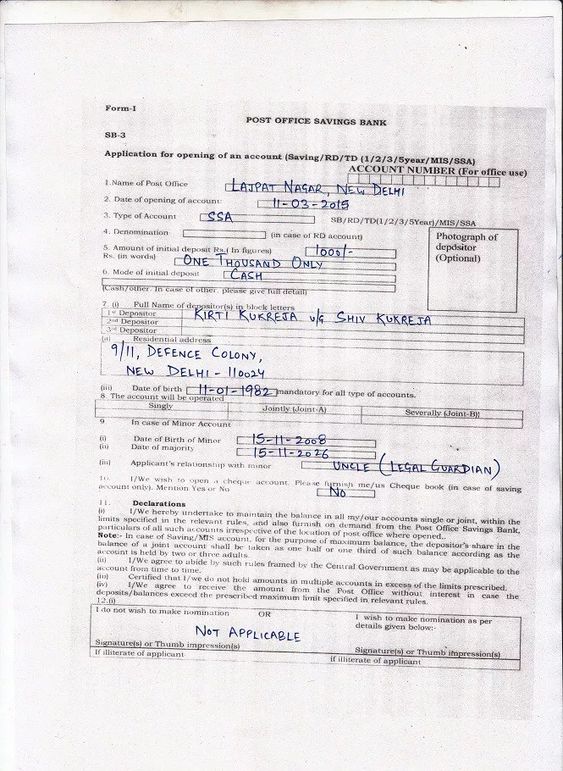 Form-I
POST OFFICE SAVINGS BANK
SB-3
Application for opening of an account (Saving/RD/TD (1/2/3/5year/MIS/SSA)
ACCOUNT NUMBER (For office use)
1.Name of Post Office LAJPAT NAGAR, NEW DELHI
2. Date of opening of account 11-03-2015
3. Type of Account SSA SB/RD/TD(1/2/3/5Year)/MIS/SSA
4. Denomination (in case of RD account)
Photograph of
depositor
(Optional)
5. Amount of initial deposit Rs.( In figures) 1000/-
Rs. (in words) ONE THOUSAND ONLY
6. Mode of initial deposit CASH
(Cash/other. In case of other, please give full detail)
7 (i) Full Name of depositor(s) in block letters
1st Depositor KIRTI KUKREJA u/g SHIV KUKREJA
2nd Depositor
3rd Depositor
Residential address
9/11, DEFENCE COLONY,
NEW DELHI - 110024
(iii) Date of birth 11-01-1982 mandatory for all type of accounts.
8. The account will be operated
Singly Jointly (Joint-A) Severally (Joint-B)
9 In case of Minor Account
(i) Date of Birth of Minor 15-11-2008
(ii) Date of majority 15-11-2026
(iii) Applicant's relationship with minor UNCLE (LEGAL GUARDIAN)
10. I/We wish to open a cheque account. Please furnish me/us Cheque book (in case of saving
account only). Mention Yes or No NO
11. Declarations
(i) I/We hereby undertake to maintain the balance in all my/our accounts single or joint, within the
limits specified in the relevant rules, and also furnish on demand from the Post Office Savings Bank,
particulars of all such accounts irrespective of the location of post office where opened..
Note:- In case of Saving/MIS account, for the purpose of maximum balance, the depositor's share in the
balance of a joint account shall be taken as one half or one third of such balance according as the
account is held by two or three adults.
(ii) I/We agree to abide by such rules framed by the Central Government as may be applicable to the
account from time to time.
(iii) Certified that I/we do not hold amounts in multiple accounts in excess of the limits prescribed.
(iv) I/We agree to receive the amount from the Post Office without interest in case the
deposits/balances exceed the prescribed maximum limit specified in relevant rules.
12.(i)
I do not wish to make nomination OR I wish to make nomination as per
details given below:-
NOT APPLICABLE
Signature(s) or Thumb impression(s) Signature(s) or Thumb impression(s)
If illiterate of applicant If illiterate of applicant